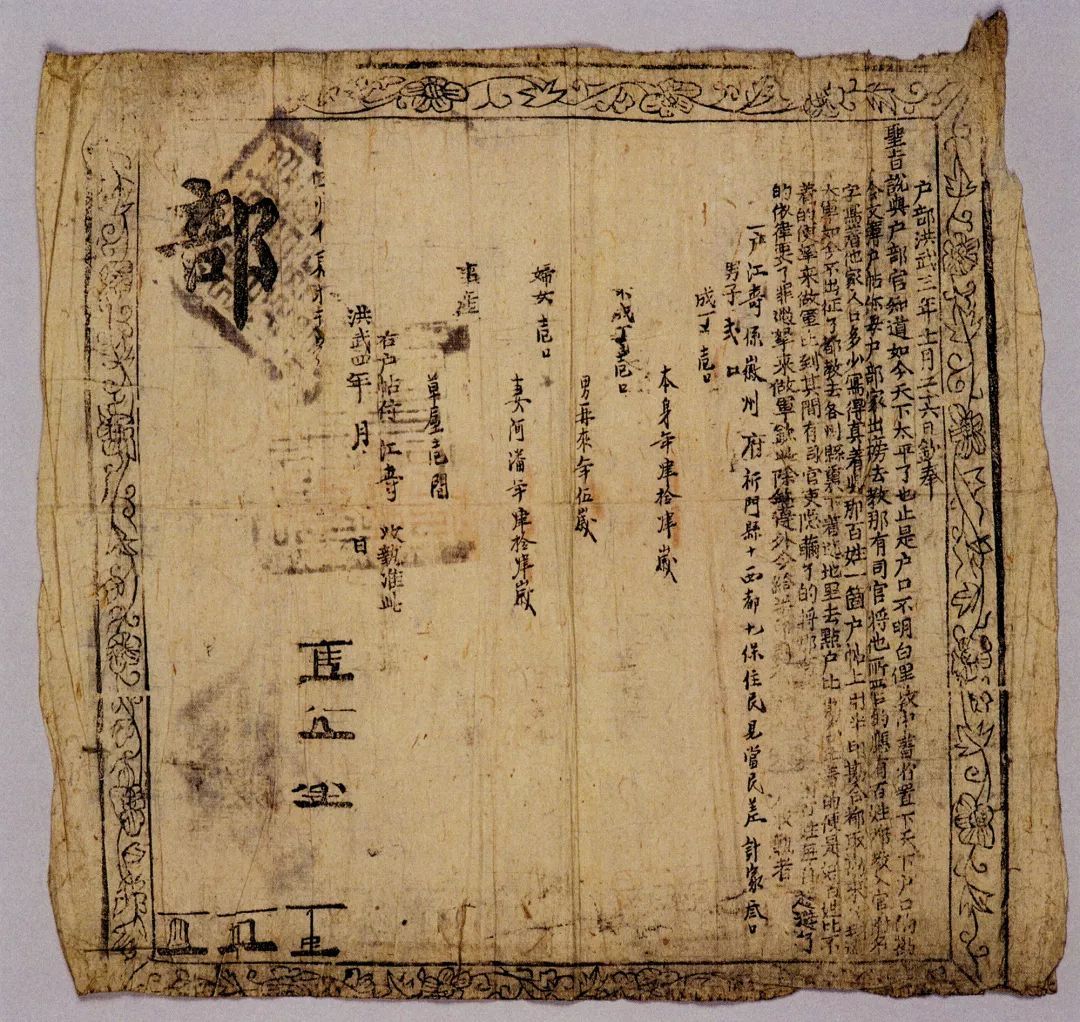 户部洪武三年十一月二十六日欽奉
聖旨說與户部官知道如今天下太平了也止是户口不明白俚教中書省置下天下户口的勘
合文簿户帖你每户部家出榜去教那有司官將他所管的應有百姓都教入官附名
字寫着他家人口多少寫得真着與那百姓一箇户帖上用半印勘合都取勘來
大軍如今不出征了都教去各州縣裏下着遶地里去點户比 的便是好百姓比不
着的便拏來做軍比到其間有司官吏隱瞞了的將那 百姓每自躲避了
的依律要了罪過拏來做軍欽此除欽遵外今給 收執者
一户江壽係徽州府祁門縣十西都七保住民見當民差計家叁口
男子弍口
成丁壱口
本身年肆拾肆歲
不成丁壱口
男再來年伍歲
婦女壱口
妻阿潘年肆拾肆歲
事產
草屋壱間
右户帖付江壽收執准此
洪武四年 月 日
部